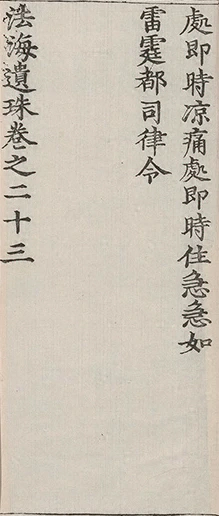 處即時凉痛處即時住急急如
雷霆都司律令
法海遺珠卷之二十三